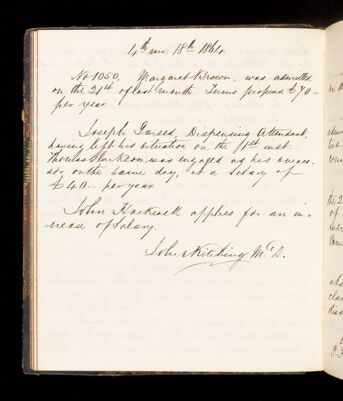 4th mo: 18th 1864.
No 1050. Margaret Brown, was admitted
on the 21st of last month. Terms proposed £70-
per year.
Joseph Dispensing Attendant,
having left his situation on the 11th inst.
Thomas Clarkson was engaged as his succes-
sor on the same day, at a salary of
£40.. per year
John applies for an in-
crease of Salary.
John Kitching M.D.